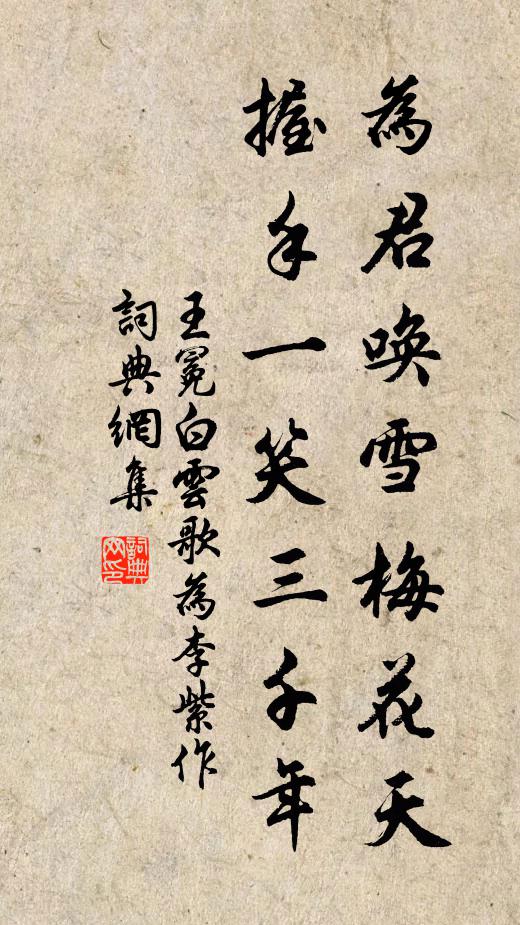 為君喚雪梅花天
握手一笑三千年
王冕白雲歌為李紫作
詞典網集
詞典網印